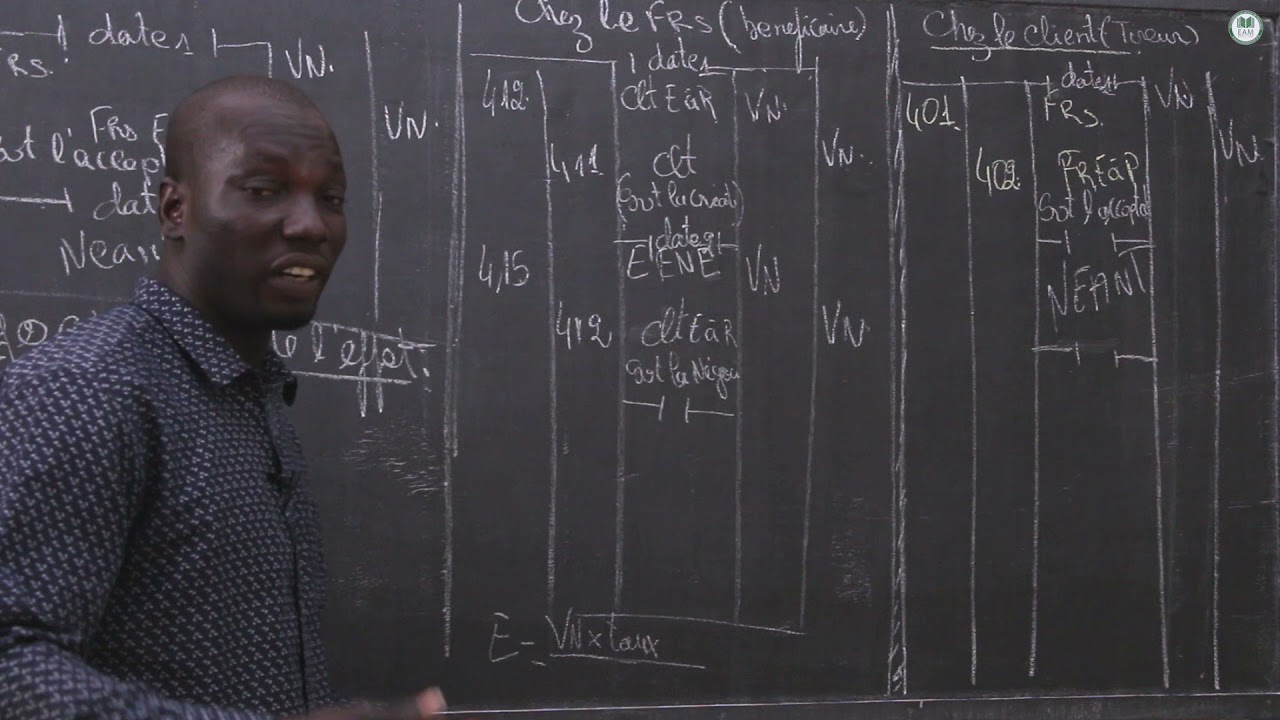 dates
FRs.
VN.
FRs E
VN.
Sort l'accept
dat
Nean
de l'effet:
Chez le FRs (beneficiaire)
dates
412
Clt E à R
VN.
411
Clt
VN.
(Sort la créat)
dates
415
E ENE
VN
412
Clt E à R
VN
sort la Négou
E = VN x taux
Chez le client (Tireur)
dates
401
FRs.
VN
402
FR E à P
VN.
Sort l'accepta
NEANT
EAM